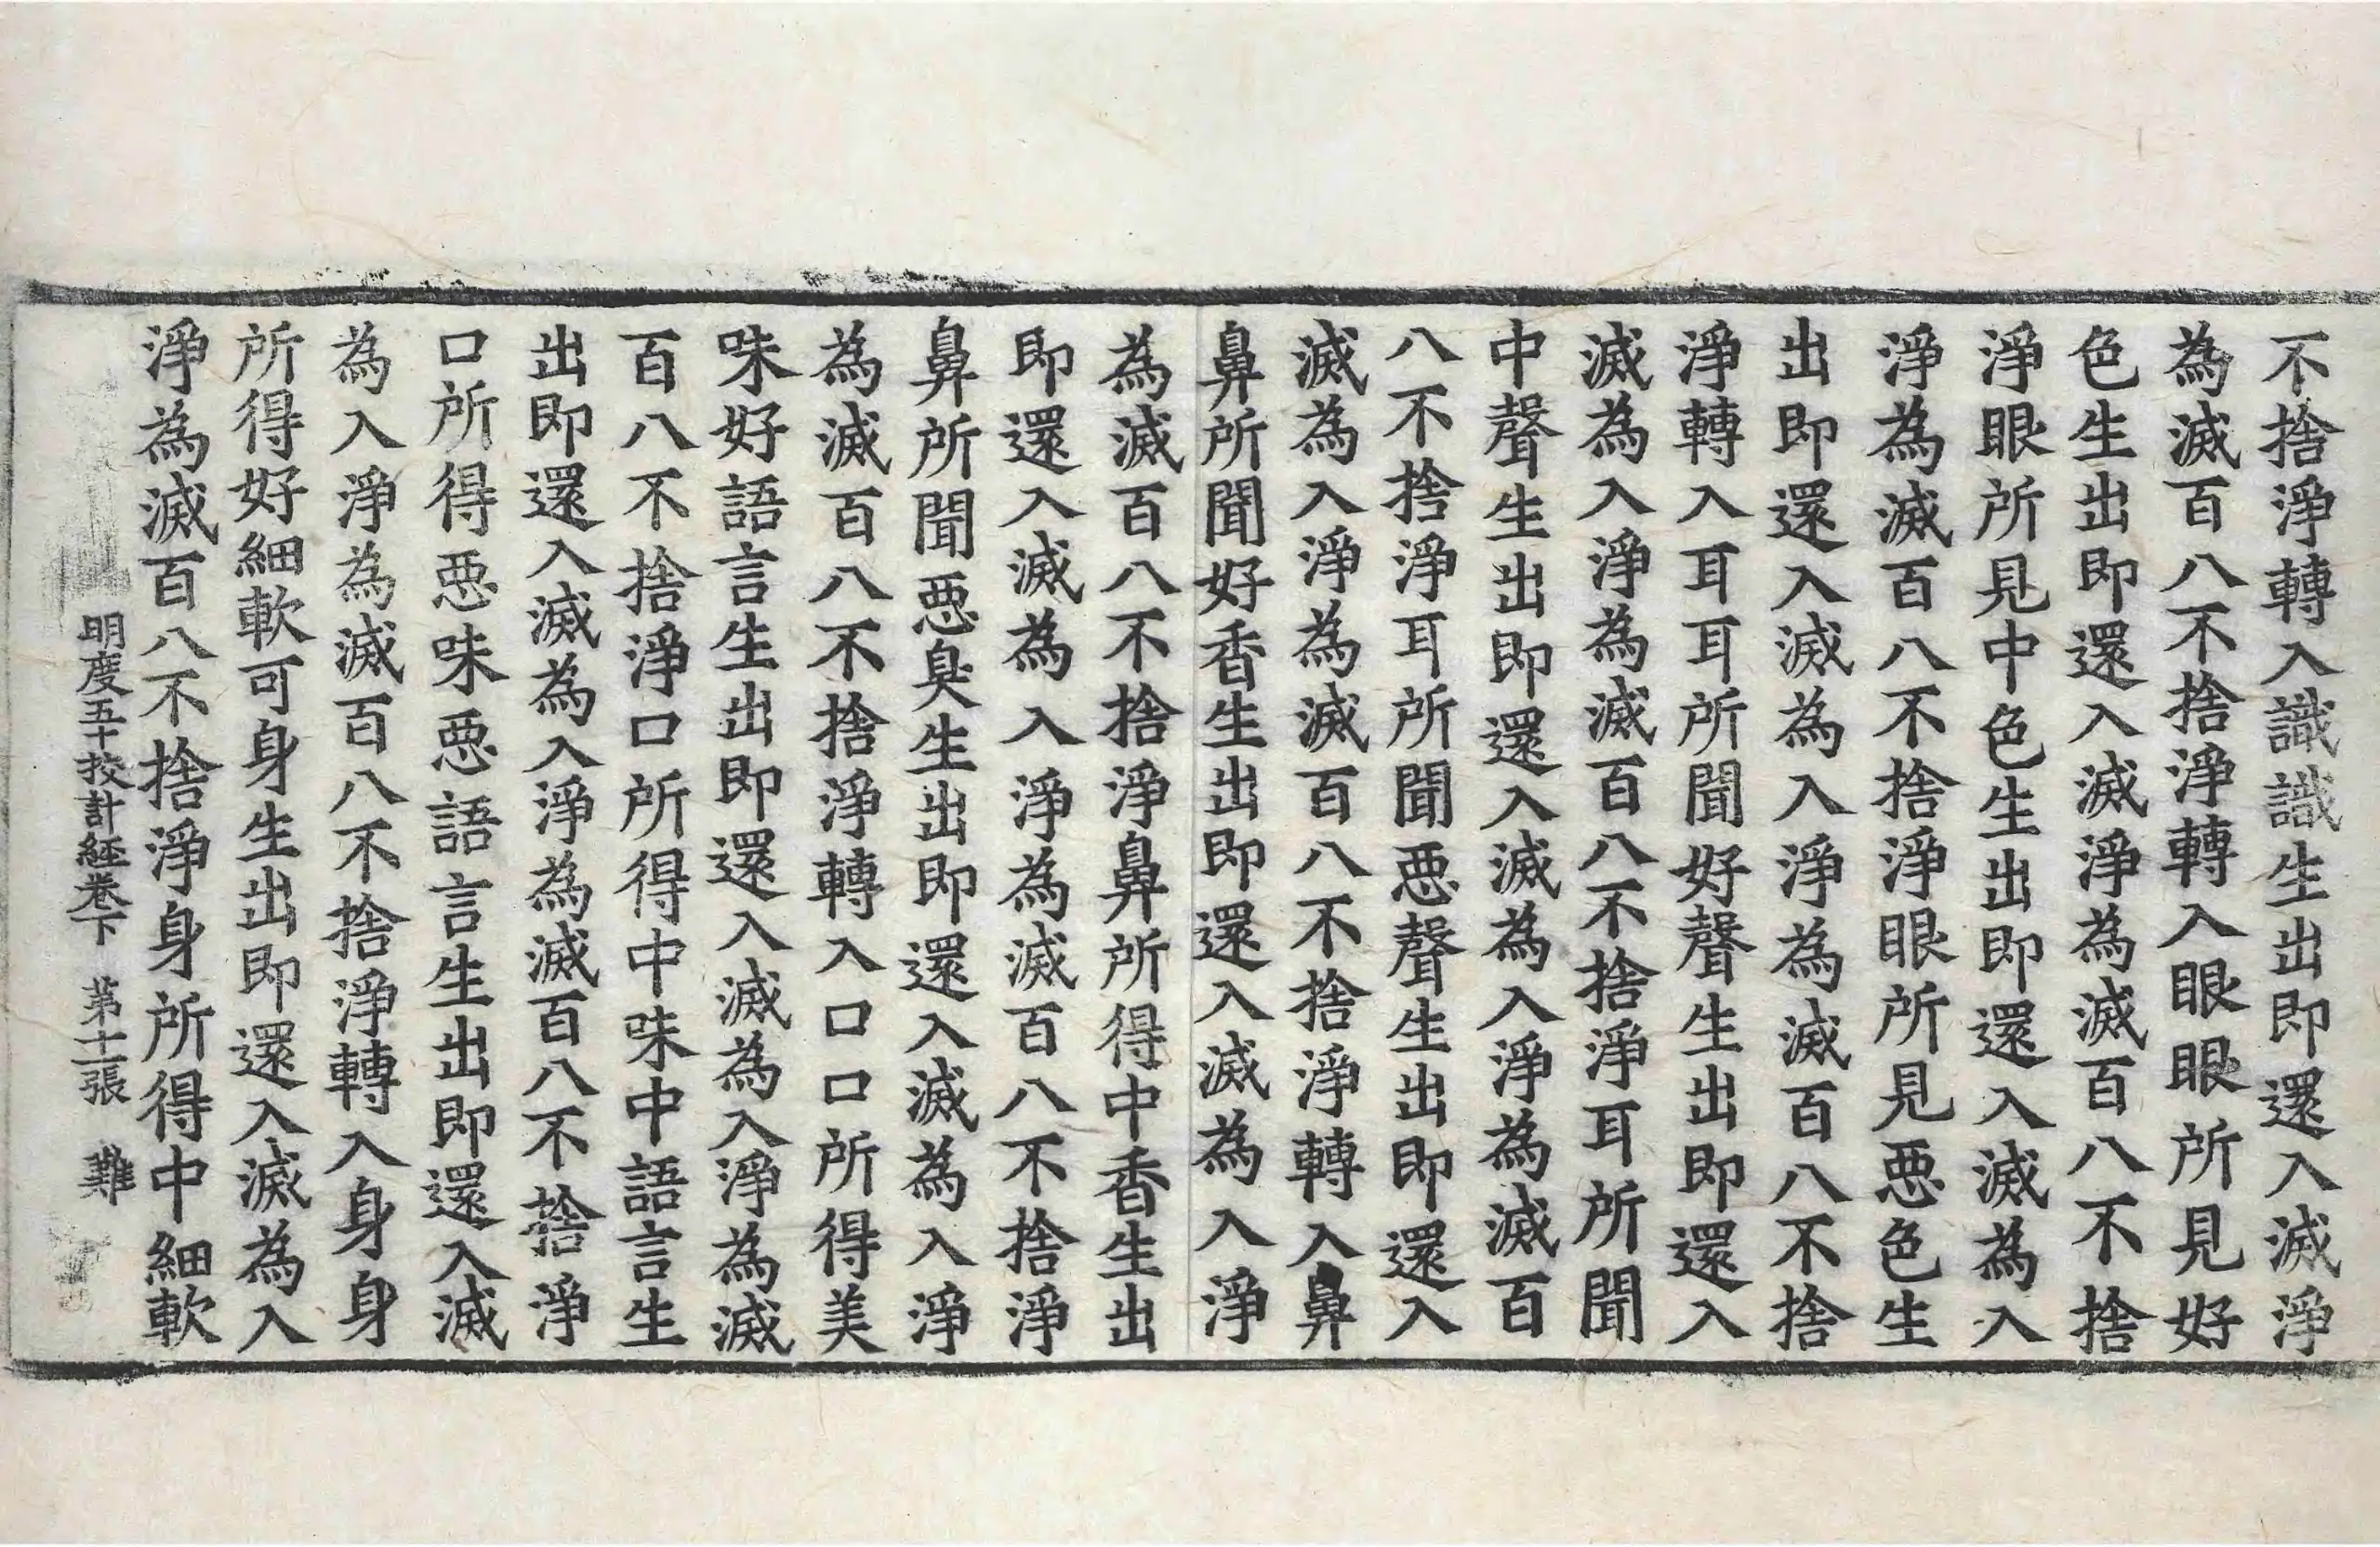 不捨淨轉入識識生出即還入滅淨
為滅百八不捨淨轉入眼眼所見好
色生出即還入滅淨為滅百八不捨
淨眼所見中色生出即還入滅為入
淨為滅百八不捨淨眼所見惡色生
出即還入滅為入淨為滅百八不捨
淨轉入耳耳所聞好聲生出即還入
滅為入淨為滅百八不捨淨耳所聞
中聲生出即還入滅為入淨為滅百
八不捨淨耳所聞惡聲生出即還入
滅為入淨為滅百八不捨淨轉入鼻
鼻所聞好香生出即還入滅為入淨
為滅百八不捨淨鼻所得中香生出
即還入滅為入淨為滅百八不捨淨
鼻所聞惡臭生出即還入滅為入淨
為滅百八不捨淨轉入口口所得美
味好語言生出即還入滅為入淨為滅
百八不捨淨口所得中味中語言生
出即還入滅為入淨為滅百八不捨淨
口所得惡味惡語言生出即還入滅
為入淨為滅百八不捨淨轉入身身
所得好細軟可身生出即還入滅為入
淨為滅百八不捨淨身所得中細軟
明度五十挍計經卷下 第十二張 難